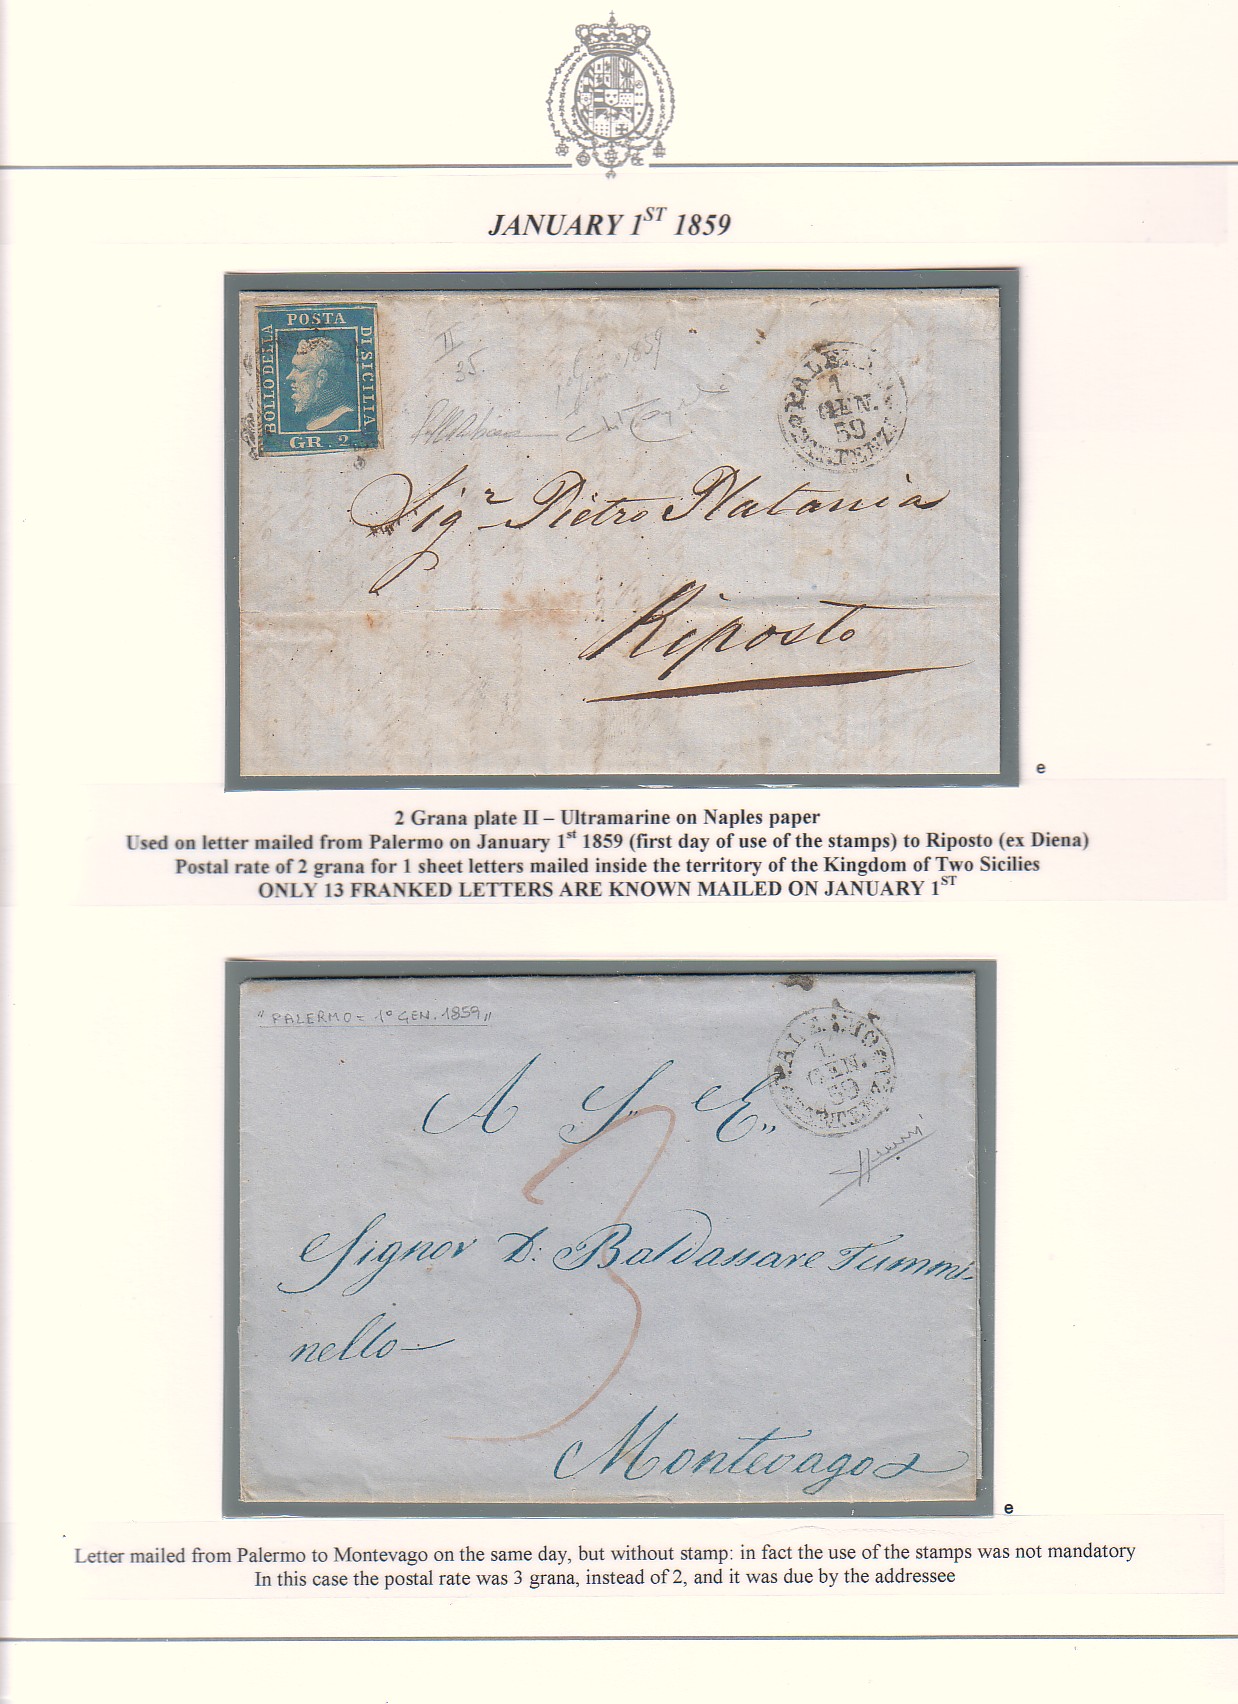 JANUARY 1ST 1859
POSTA
BOLLO DELLA
DI SICILIA
GR. 2
II
35.
1859
PALERMO
1
GEN.
59
PARTENZA
Sigr Pietro Platania
Riposto
e
2 Grana plate II – Ultramarine on Naples paper
Used on letter mailed from Palermo on January 1st 1859 (first day of use of the stamps) to Riposto (ex Diena)
Postal rate of 2 grana for 1 sheet letters mailed inside the territory of the Kingdom of Two Sicilies
ONLY 13 FRANKED LETTERS ARE KNOWN MAILED ON JANUARY 1ST
"PALERMO = 1° GEN. 1859"
PALERMO
1
GEN.
59
PARTENZA
A S. E.
3
Signor D: Baldassare Tummi-
nello
Montevago
e
Letter mailed from Palermo to Montevago on the same day, but without stamp: in fact the use of the stamps was not mandatory
In this case the postal rate was 3 grana, instead of 2, and it was due by the addressee